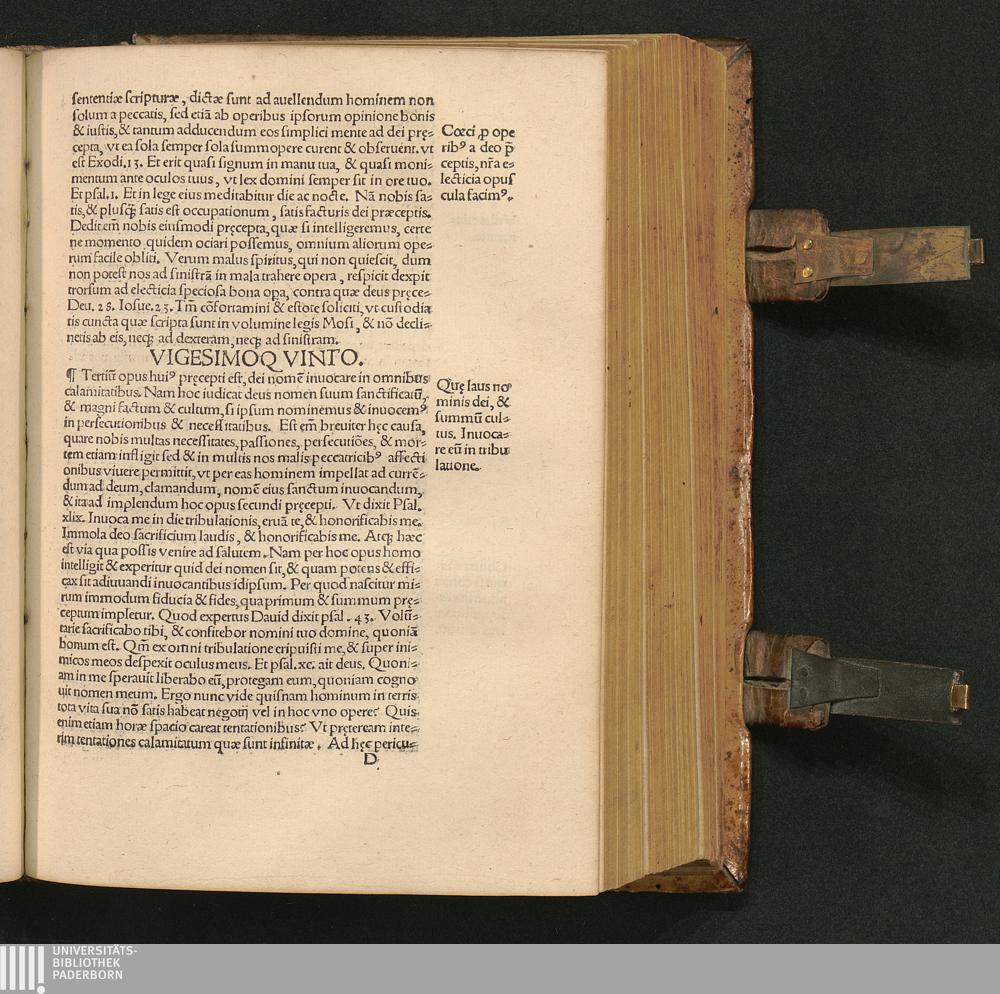 sententiæ scripturæ, dictæ sunt ad auellendum hominem non
solum a peccatis, sed etiã ab operibus ipsorum opinione bonis
& iustis, & tantum adducendum eos simplici mente ad dei prę=
cepta, vt ea sola semper sola summopere curent & obseruent. vt
est Exodi.13. Et erit quasi signum in manu tua, & quasi moni=
mentum ante oculos tuos, vt lex domini semper sit in ore tuo.
Et psal.1. Et in lege eius meditabitur die ac nocte. Nã nobis sa=
tis, & plusq̃; satis est occupationum, satis facturis dei præceptis.
Dedit em̃ nobis eiusmodi pręcepta, quæ si intelligeremus, certe
ne momento quidem ociari possemus, omnium aliorum ope=
rum facile obliti. Verum malus spiritus, qui non quiescit, dum
non potest nos ad sinistrã in mala trahere opera, respicit dexpit
trorsum ad electicia speciosa bona oṗa, contra quæ deus pręce=
Deu. 28. Iosue.23. Tm̃ cõfortamini & estote soliciti, vt custodia
tis cuncta quæ scripta sunt in volumine legis Mosi, & nõ decli=
netis ab eis, necq; ad dexteram, necq; ad sinistram.
Cœci ꝓ ope
ribꝰ a deo p̃
ceptis, nr̃a e=
lecticia opus
cula facimꝰ.
VIGESIMOQVINTO.
¶ Tertiũ opus huiꝰ pręcepti est, dei nomẽ inuocare in omnibus
calamitatibus. Nam hoc iudicat deus nomen suum sanctificatũ,
& magni factum & cultum, si ipsum nominemus & inuocemꝰ
in persecutionibus & necessitatibus. Est em̃ breuiter hęc causa,
quare nobis multas necessitates, passiones, persecutiões, & mor=
tem etiam infligit sed & in multis nos malis peccatricibꝰ affecti
onibus viuere permittit, vt per eas hominem impellat ad currẽ=
dum ad deum, clamandum, nomẽ eius sanctum inuocandum,
& ita ad implendum hoc opus secundi pręcepti. Vt dixit Psal.
xlix. Inuoca me in die tribulationis, eruã te, & honorificabis me.
Immola deo sacrificium laudis, & honorificabis me. Atcq; hæc
est via qua possis venire ad salutem. Nam per hoc opus homo
intelligit & experitur quid dei nomen sit, & quam potens & effi=
cax sit adiuuandi inuocantibus idipsum. Per quod nascitur mi=
rum immodum fiducia & fides, qua primum & summum prę=
ceptum impletur. Quod expertus Dauid dixit psal. 43. Volũ=
tarie sacrificabo tibi, & confitebor nomini tuo domine, quoniã
bonum est. Qm̃ ex omni tribulatione eripuisti me, & super ini=
micos meos despexit oculus meus. Et psal. xc. ait deus. Quoni=
am in me sperauit liberabo eũ, protegam eum, quoniam cogno
uit nomen meum. Ergo nunc vide quisnam hominum in terris
tota vita sua nõ satis habeat negotij vel in hoc vno opere? Quis
enim etiam horæ spacio careat tentationibus? Vt pręteream inte=
rim tentationes calamitatum quæ sunt infinitæ. Ad hęc pericu=
D
Quę laus no
minis dei, &
summũ cul=
tus. Inuoca=
re eũ in tribu
latione.
UNIVERSITÄTS-
BIBLIOTHEK
PADERBORN